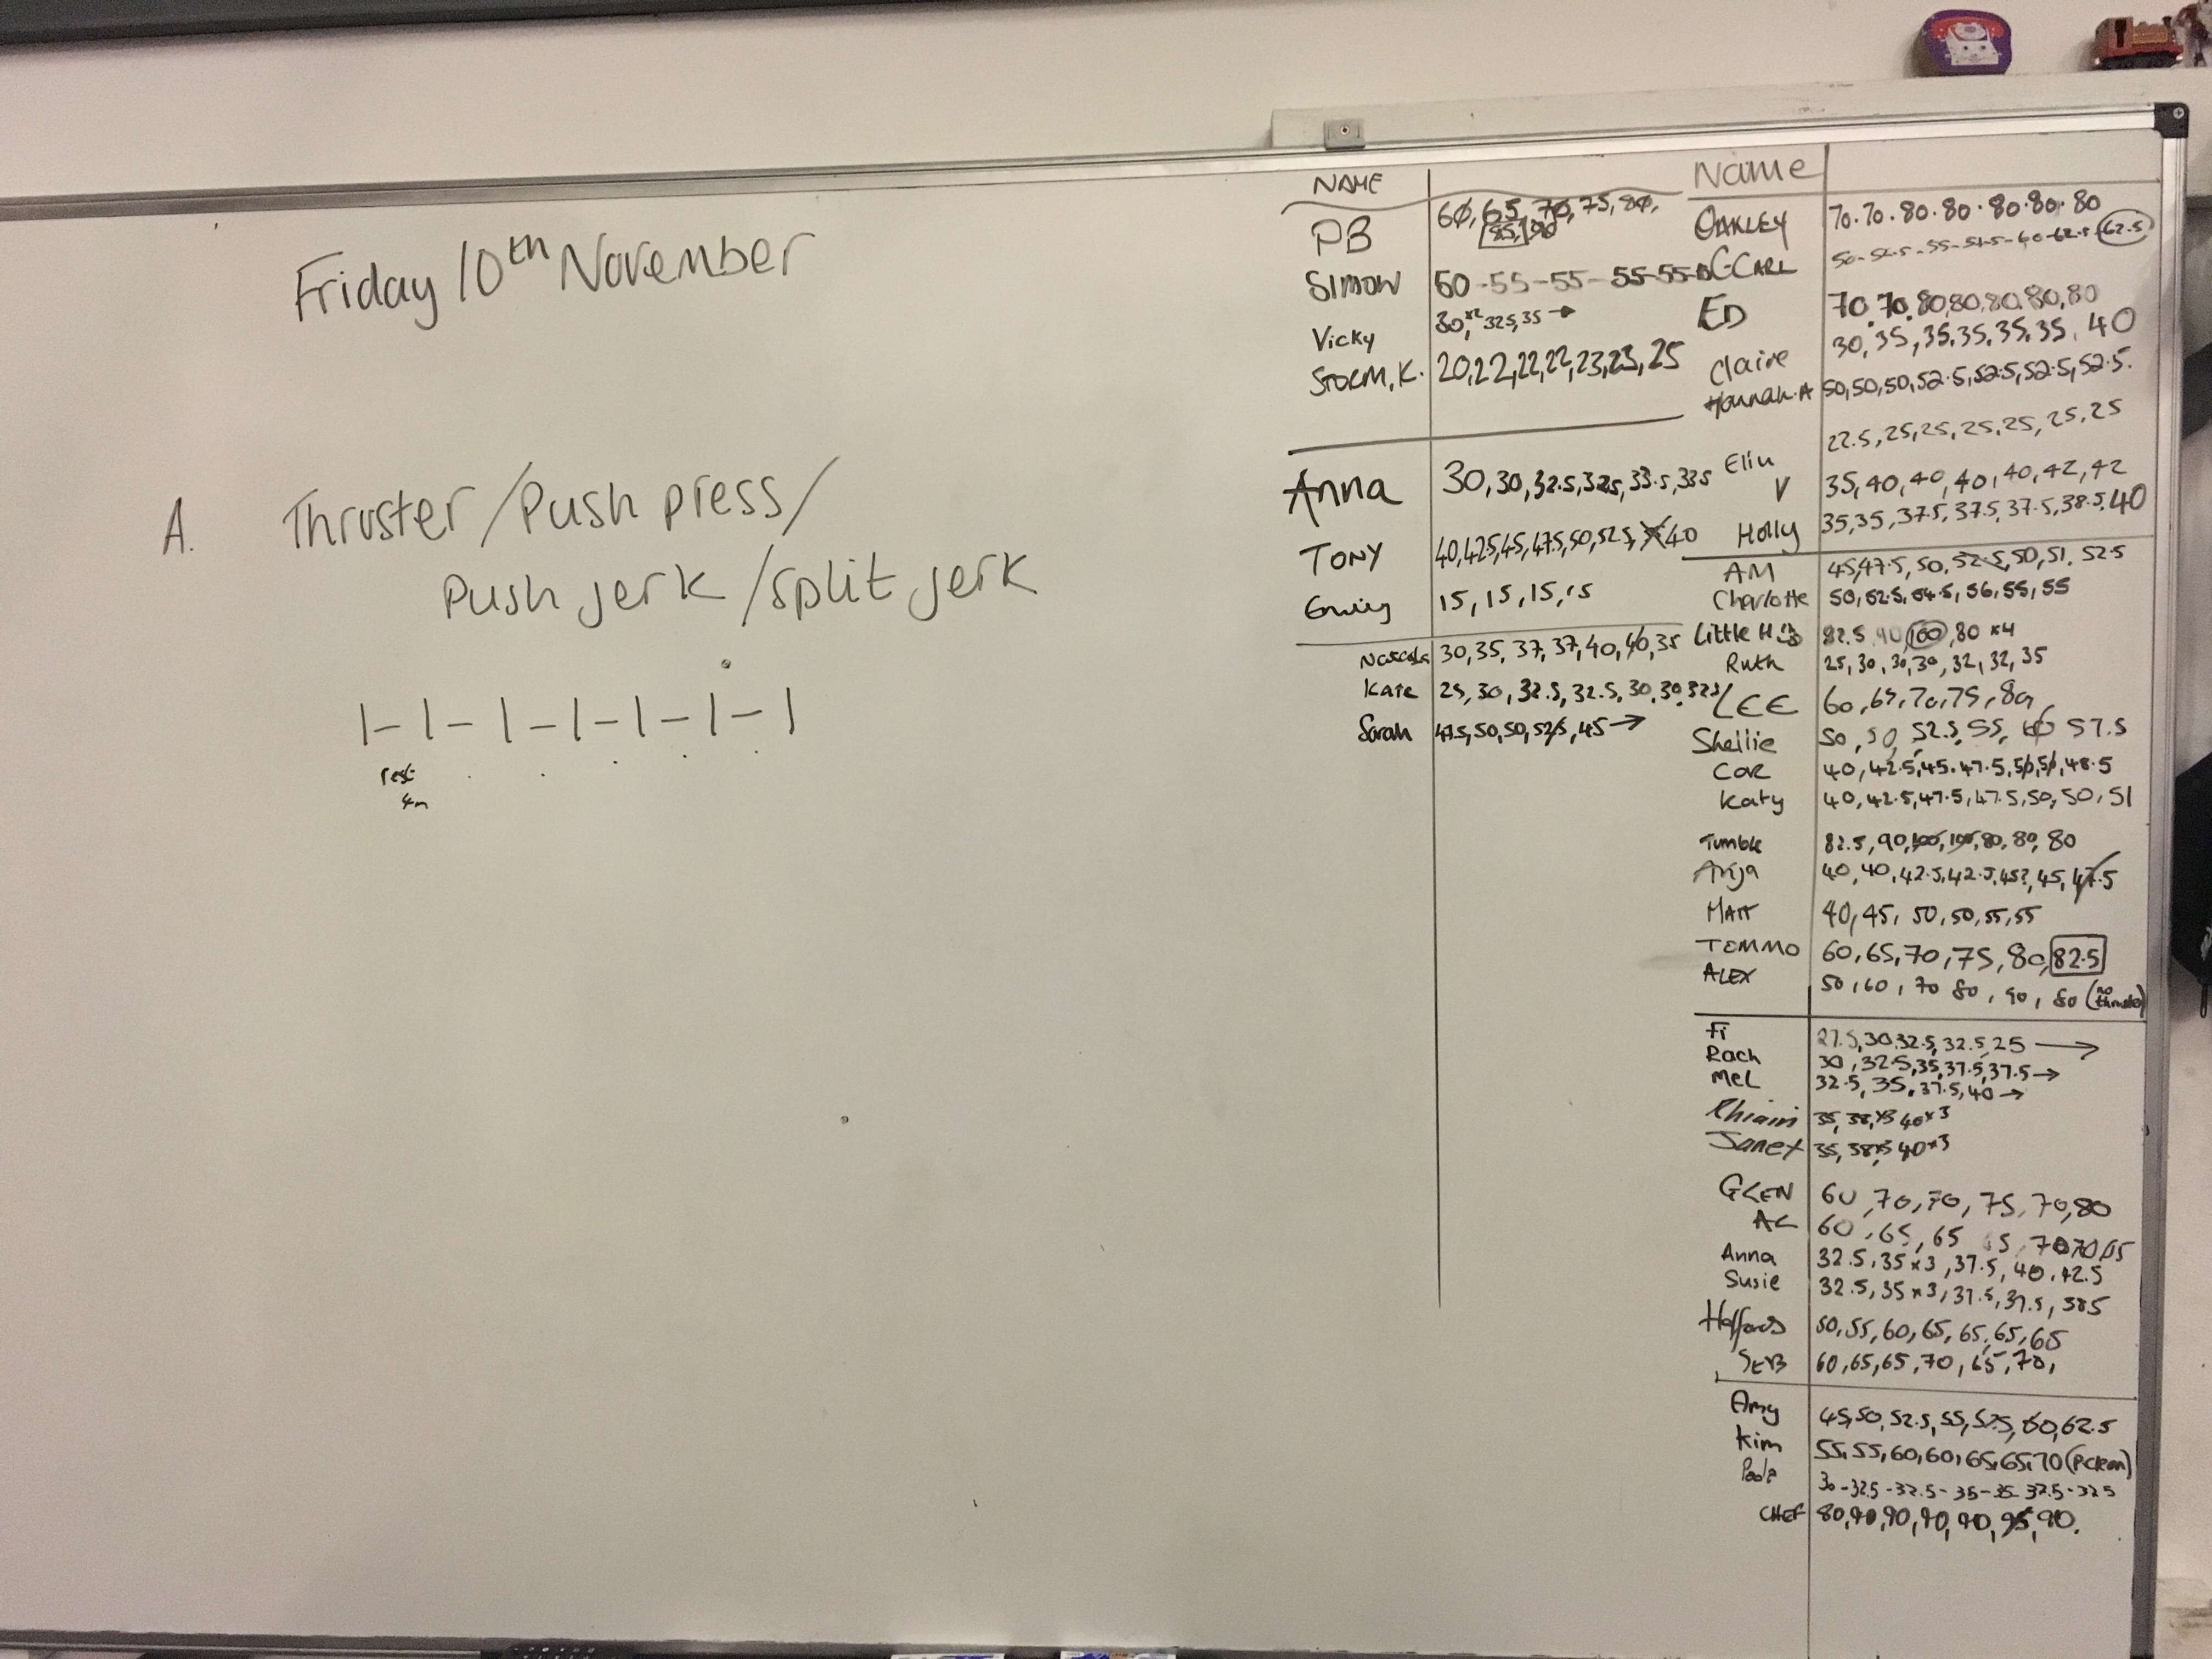 Friday 10th November
A. Thruster/Push press/
Push jerk/split jerk
1-1-1-1-1-1-1
rest
4m
NAME
PB 60, 65, 70, 75, 80,
85, 90
SIMON 50-55-55-55-55-
Vicky 30,x2 32.5, 35 →
STORM.K. 20,22,22,22,23,23,25
Anna 30,30,32.5,32.5,33.5,33.5
TONY 40,42.5,45,47.5,50,52.5, 40
15, 15, 15, 15
30, 35, 37, 37, 40, 40, 35
Kate 25, 30, 32.5, 32.5, 30, 30, 32.5
Sarah 47.5, 50, 50, 52.5, 45 →
Name
OAKLEY 70.70.80.80.80.80.80
CARL 62.5
ED 70,70,80,80,80,80,80
Claire 30,35,35,35,35,35,40
Hannah.A 50,50,50,52.5,52.5,52.5,52.5.
22.5,25,25,25,25,25,25
V 35,40,40,40,40,42,42
Holly 35,35,37.5,37.5,37.5,38.5,40
AM 45,47.5,50,52.5,50,51,52.5
Charlotte 50,52.5,54.5,56,55,55
Little H 82.5, 90, 100, 80 x4
Ruth 25, 30, 30, 30, 32, 32, 35
LEE 60, 65, 70, 75, 80,
Shellie 50, 50, 52.5, 55, 57.5
40,42.5,45,47.5,50,50,48.5
Katy 40,42.5,47.5,47.5,50,50,51
Tumble 82.5,90,100,100,80,80,80
Anja 40,40,42.5,42.5,45?,45,47.5
MATT 40,45,50,50,55,55
TOMMO 60,65,70,75,80,82.5
ALEX 50,60,70 80,90,80 (no
Fi 27.5,30,32.5,32.5,25 →
Rach 30,32.5,35,37.5,37.5 →
MEL 32.5,35,37.5,40 →
35, 38,x3 40x3
Janet 35, 38x3 40x3
GLEN 60, 70, 70, 75, 70, 80
60, 65, 65
Anna 32.5, 35 x 3, 37.5, 40, 42.5
Susie 32.5, 35 x 3, 37.5, 37.5, 38.5
50,55,60,65,65,65,65
SEB 60,65,65,70,65,70,
Amy 45,50,52.5,55,57.5,60,62.5
Kim 55,55,60,60,65,65,70 (Pclean)
30-32.5-32.5-35-35-37.5-32.5
CHEF 80,90,90,90,90,95,90.